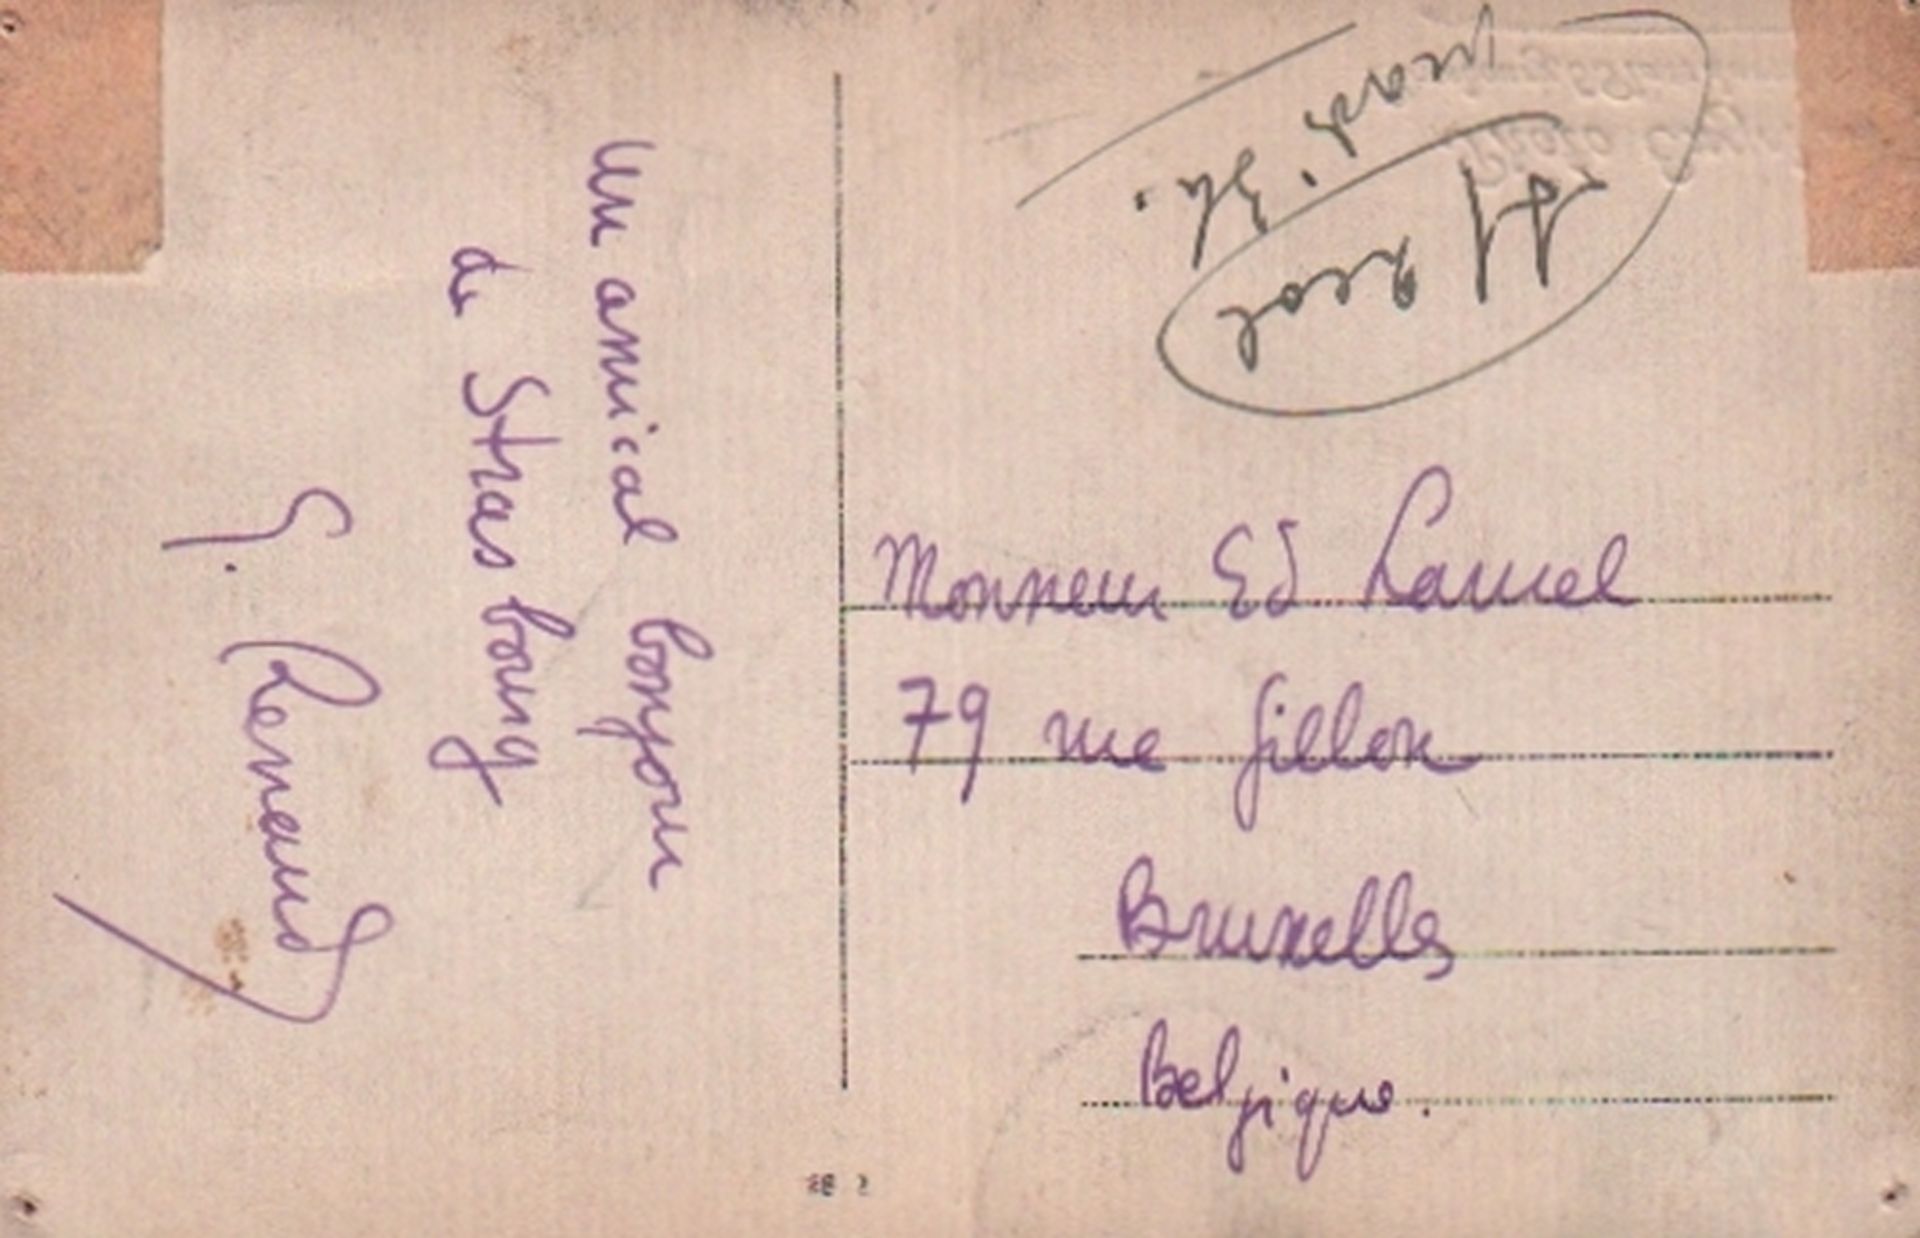 Un amical bonjour
de Strasbourg
G. Renaud
Monsieur Ed
79 rue Gillon
Bruxelles
Belgique.